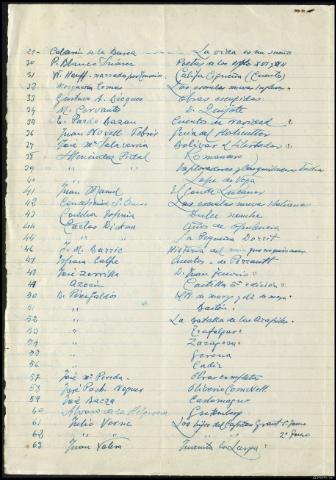 29 - Calderón de la Barca - La vida es un sueño
30 P. Blanco Suárez Poetas de los siglos XVI y XV
31 W. Hauff - narrado por Califa Cigüeña (Cuento)
32 Tomás Las escuelas nuevas
33 Gustavo A. Bécquer obras escogidas
34 M. Cervantes D. Quijote
35 E. Pardo Bazán Cuentos de navidad
36 Juan Novell
37 José Mª Salaverría Bolívar el Libertador
38 Menéndez Pidal Romancero
39 " Exploradores y Conquistadores de Indias
40 " Lope de Vega
41 Juan Manuel El Conde Lucanor
42 Concepción Las escuelas nuevas italianas
43 Concha Espina Dulce nombre
44 Carlos Dickens Años de
45 " " La pequeña Dorrit
46 J. M. Barrie Historia del
47 Espasa Calpe Cuentos de Perrault
48 José Zorrilla D. Juan Tenorio
49 Azorín Castilla 5ª edición
50 B. Pérez Galdós 19 de marzo y 2 de mayo
51 " Bailén
52 " La Batalla de los Arapiles
53 " Trafalgar
54 " Zaragoza
55 " Gerona
56 " Cádiz
57 José Mª Pereda Obras completas
58 José Poch Noguer Oliverio Cromwell
59 José Baeza Carlomagno
60 Álvaro de la Helguera Gutenberg
61 Julio Verne Los hijos del Capitán Grant 1º Tomo
62 " " " " " 2º Tomo
63 Juan Valera Juanita la Larga